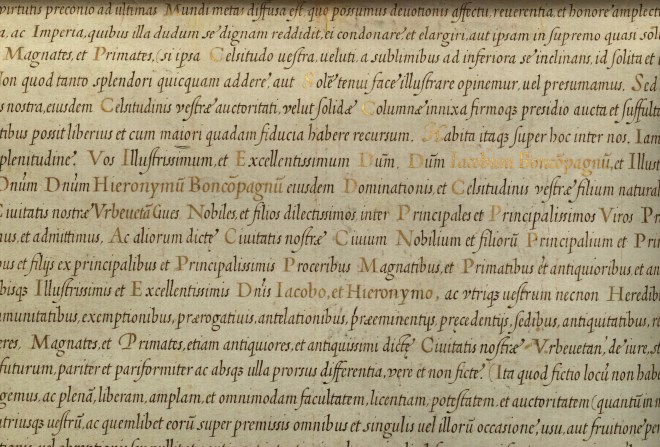 virtutis preconio ad ultimas Mundi metas diffusa est, quo possumus deuotionis affectu, reuerentia, et honore amplect
a, ac Imperia, quibus illa dudum se dignam reddidit, ei condonare, et elargiri, aut ipsam in supremo quasi soli
Magnates, et Primates, (si ipsa Celsitudo uestra, ueluti a sublimibus ad inferiora se inclinans, id solita et
Non quod tanto splendori quicquam addere, aut Solē tenui face illustrare opinemur, uel presumamus. Sed
is nostra, eiusdem Celsitudinis vestræ auctoritati, velut solidæ Columnæ innixa firmoq3 presidio aucta et suffulta
tibus possit liberius et cum maiori quadam fiducia habere recursum. Habita itaq3 super hoc inter nos. Iam
plenitudine. Vos Illustrissimum, et Excellentissimum Dūm. Dūm Iacobum Boncōpagnū, et Illust
Dnūm Dnūm Hieronymū Boncōpagnū eiusdem Dominationis, et Celsitudinis vestræ filium natural
Ciuitatis nostræ Vrbeuetanæ Ciues Nobiles, et filios dilectissimos, inter Principales et Principalissimos Viros Pr
mus, et admittimus, Ac aliorum dictę Ciuitatis nostræ Ciuium Nobilium et filiorū Principalium et Prin
bus et filijs ex principalibus et Principalissimis Proceribus Magnatibus, et Primatibus et antiquioribus et an
bisq3 Illustrissimis et Excellentissimis Dnis Iacobo, et Hieronymo, ac vtriq3 uestrum necnon Heredib
mmunitatibus, exemptionibus, prærogatiuis, antelationibus, præeminentijs, pręcedentijs, sedibus, antiquitatibus, ri
eres, Magnates, et Primates, etiam antiquiores, et antiquissimi dictę Ciuitatis nostræ Vrbeuetan, de iure, st
futurum, pariter et pariformiter ac absq3 ulla prorsus differentia, vere et non ficte. (Ita quod fictio locū non habe
gemus, ac plenā, liberam, amplam, et omnimodam facultatem, licentiam, potestatem, et auctoritatem (quantū in n
utriusque uestrū, ac quemlibet eorū super premissis omnibus et singulis uel illorū occasione, usu, aut fruitione per